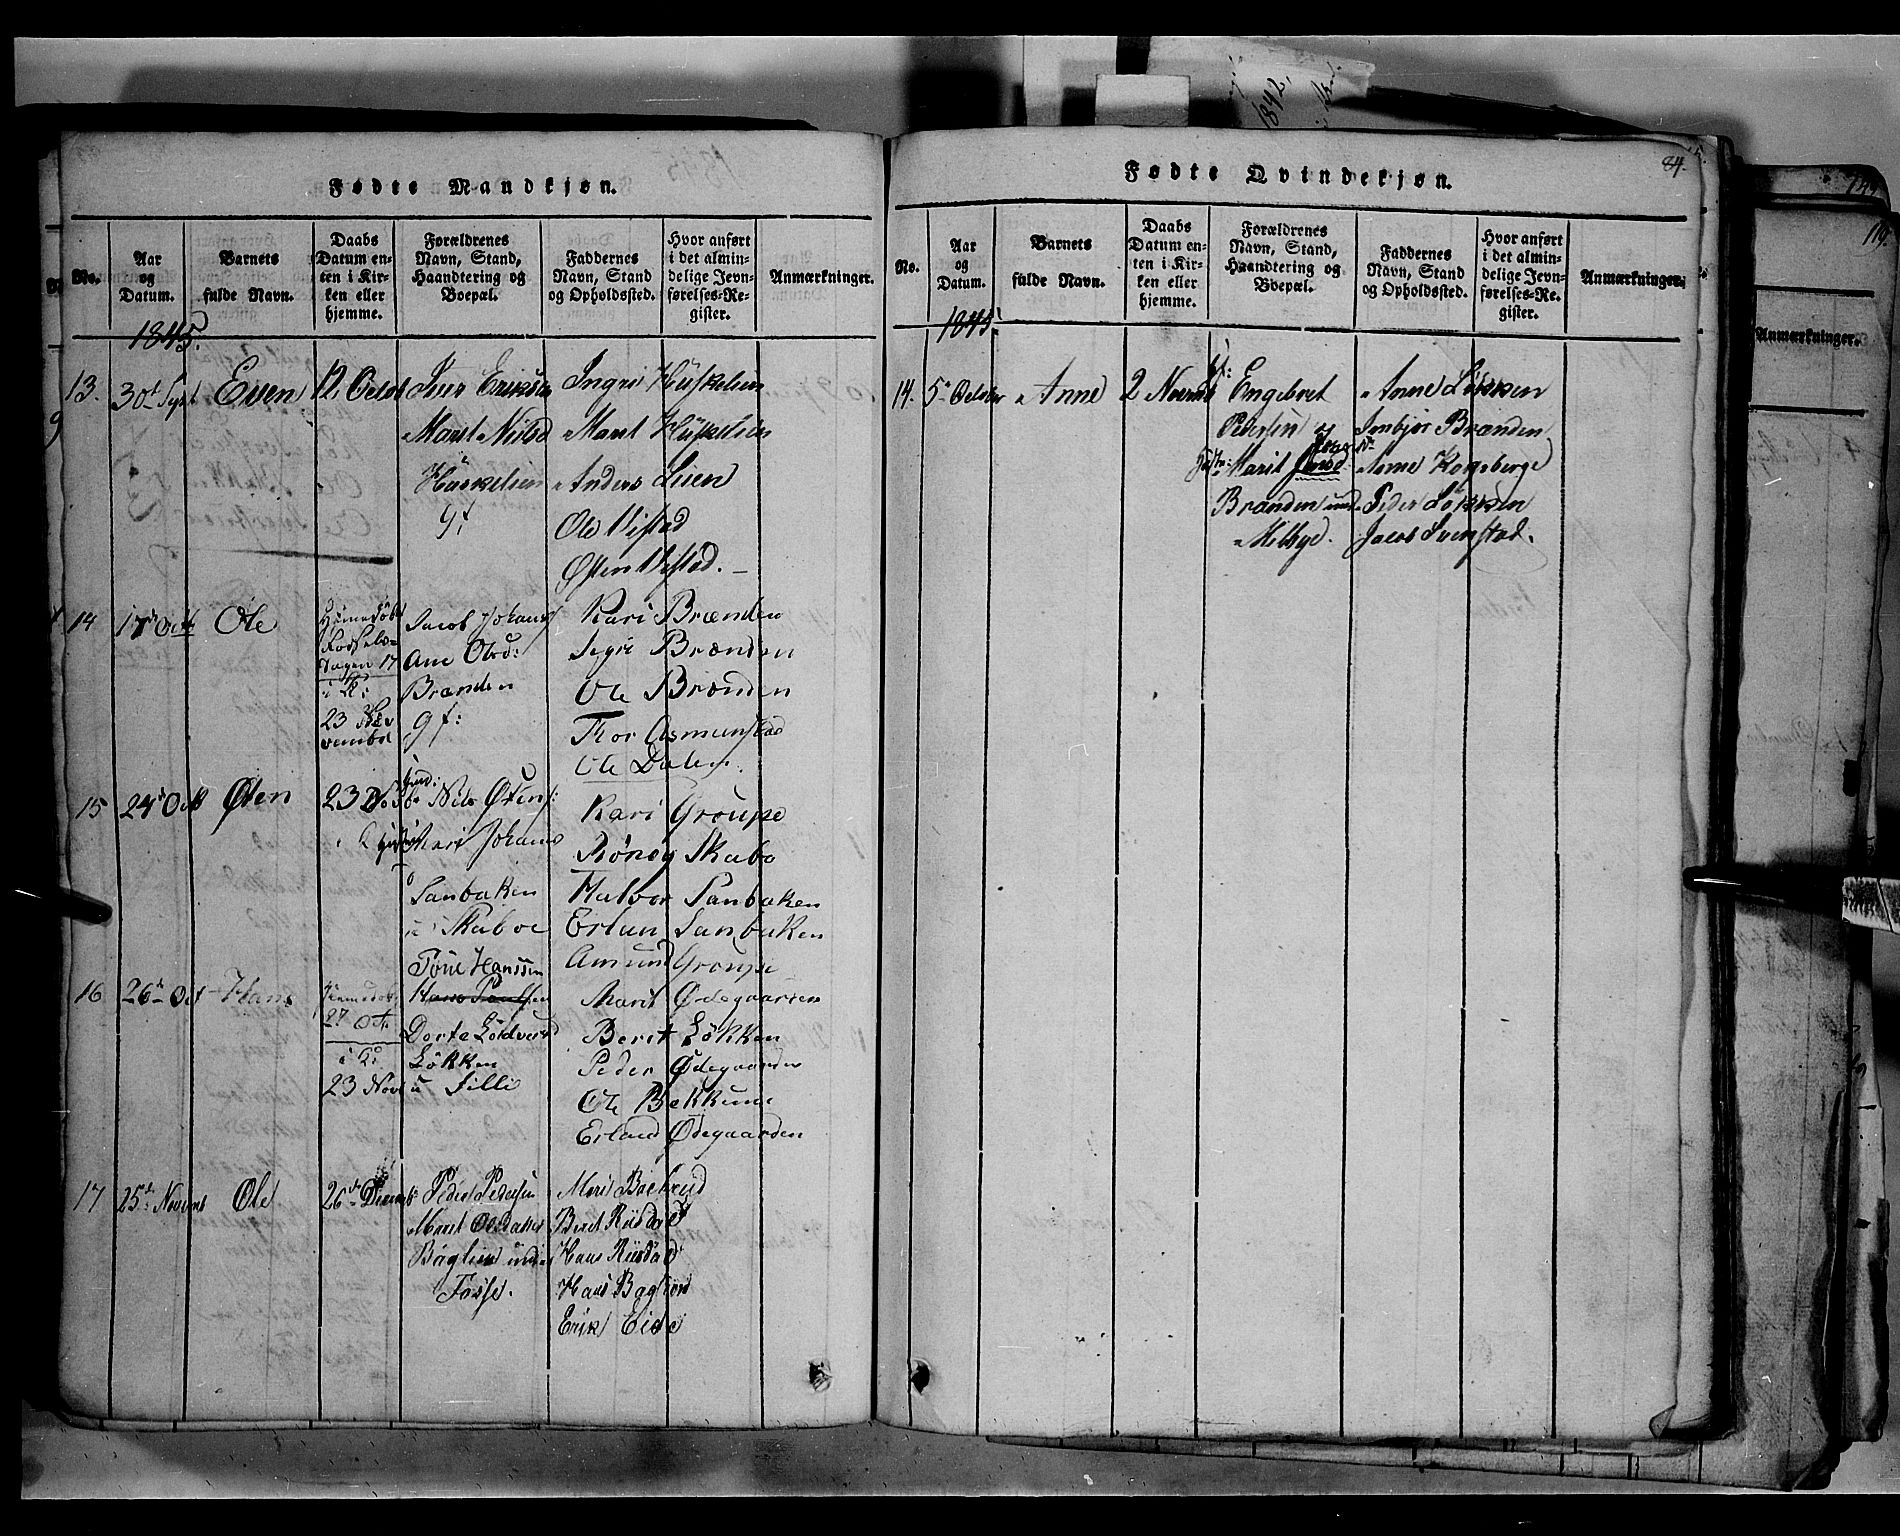 Fødte Mandkjøn.
No.
Aar
og
Datum.
Barnets
fulde Navn.
Daabs
Datum en-
ten i Kir-
ken eller
hjemme.
Forældrenes
Navn, Stand,
Haandtering og
Boepæl.
Faddernes
Navn, Stand
og Opholdssted.
Hvor anført
i det almin-
delige Jevn-
førelses-Re-
gister.
Anmærkninger.
1845.
13.
30te Sept
Even
12 Octob
Iver Eriksen
Marit Nilsd
Huskelien
gf
Ingri Huskelien
Marit Huskelien
Anders Lien
Ole Vistad
Østen Vistad.
14
17 Octb
Ole
Hjemedøbt
Fødsels-
dagen 17
i K:
23 No-
vember
Jacob Johans
Ane Olsd:
Brænden
gf:
Kari Brænden
Sigri Brænden
Ole Brænden
Thor Asmunstad
Ole Dalen.
15
24 Oct
Østen
23
i K
Nils Østens:
Mari Johans
Sanbaken
u Skaboe
Kari Groupe
Rønøg Skabo
Halvor Sanbaken
Erlan Sanbaken
Amund Groupe
16
26 Oct
Hans
Hjemedøbt
27 Ot.
i K:
23 Nov
Tøne Hanssen
Hans Paulsen
Dorte
Løkken
u Lilli
Marit Ødegaarden
Berit Løkken
Peder Ødegaarden
Ole Bekkum
Erland Ødegaarden
17
25de Novemb
Ole
26de Decemb:
Peder Pedersen
Marit
Baglien under
Fosse.
Marit
Berit Rusdad
Hans Rusdad
Hans Baglien
Erik Eide
Fødte Qvindekjøn.
84.
No.
Aar
og
Datum.
Barnets
fulde Navn.
Daabs
Datum en-
ten i Kir-
ken eller
hjemme.
Forældrenes
Navn, Stand,
Haandtering og
Boepæl.
Faddernes
Navn, Stand
og Opholdssted.
Hvor anført
i det almin-
delige Jevn-
førelses-Re-
gister.
Anmærkninger.
1845.
14.
5 October
Anne
2 Novemb
Engebret
Pedersen og
Marit
Brænden und
Melbye.
Anne Løkken
Imbjør Brænden
Anne Kongsberge
Peder Løkken
Jacob Svenstad.
1842.
119.
Anmærkninger.